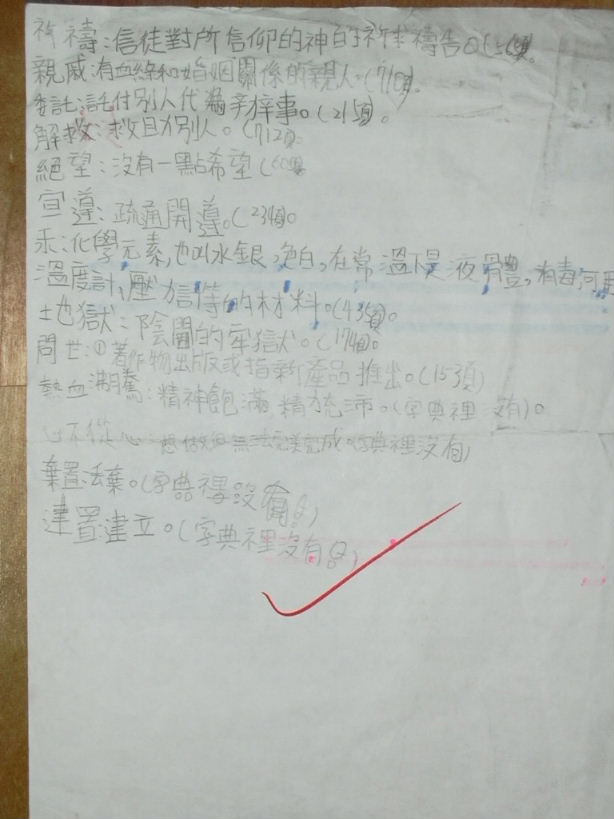 祈禱:信徒對所信仰的神的祈求禱告。
親戚:有血緣和婚姻關係的親人。(710頁)。
委託:託付別人代為辦事。(215頁)。
解救:救助別人。(712頁)。
絕望:沒有一點希望
宣導:疏通開導。(234頁)。
汞:化學元素,也叫水銀,色白,在常溫下是液體,有毒,可
溫度計、壓力計等的材料。(435頁)。
地獄:陰間的牢獄。(174頁)。
問世:①著作物出版或指新產品推出。(153頁)
熱血沸騰:精神飽滿精力充沛。(字典裡沒有)。
不從心:想做但無法完美完成。(字典裡沒有)
棄置:丟棄。(字典裡沒有。)
建置:建立。(字典裡沒有。)